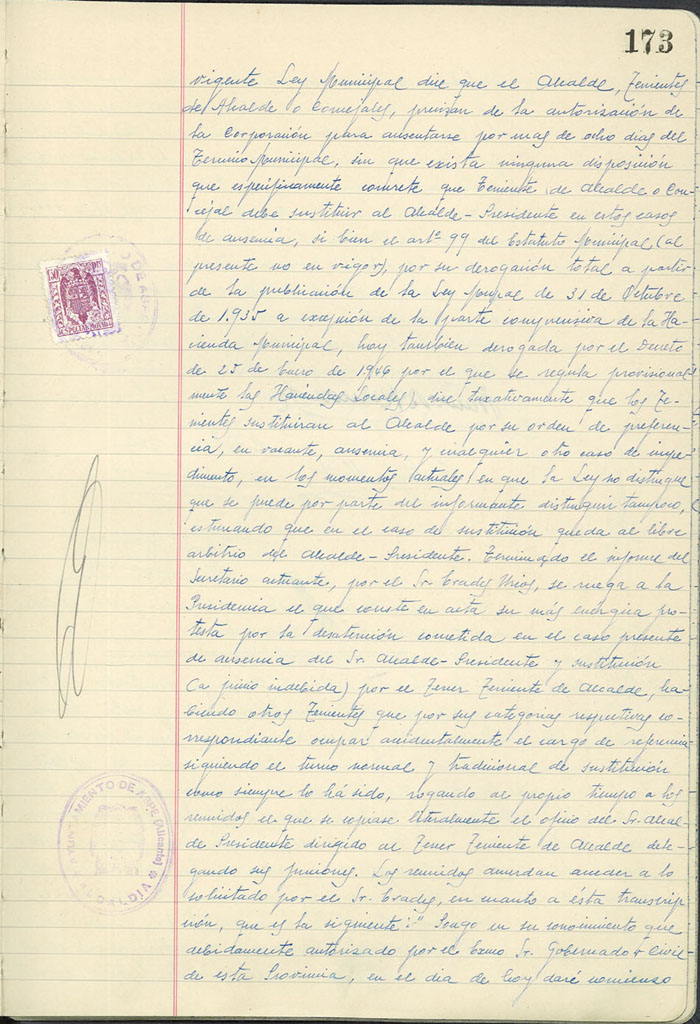 173
vigente Ley Municipal dice que el Alcalde, Tenientes
de Alcalde o Concejales, precisan de la autorización de
la Corporación para ausentarse por mas de ocho dias del
Termino Municipal, sin que exista ninguna disposición
que especificamente concrete que Teniente de Alcalde o Con-
cejal debe sustituir al Alcalde-Presidente en estos casos
de ausencia, si bien el artº 99 del Estatuto Municipal (al
presente no en vigor), por su derogación total a partir
de la publicación de la Ley Mnpal de 31 de Octubre
de 1.935 a excepción de la parte comprensiva de la Ha-
cienda Municipal, hoy también derogada por el Decreto
de 25 de Enero de 1.946 por el que se regula provisional-
mente las Haciendas Locales, dice taxativamente que los Te-
nientes sustituiran al Alcalde por su orden de preferen-
cia, en vacante, ausencia, y cualquier otro caso de impe-
dimento, en los momentos actuales en que la Ley no distingue
que se puede por parte del informante distinguir tampoco,
estimando que en el caso de sustitución queda al libre
arbitrio del Alcalde-Presidente. Terminado el informe del
Secretario actuante, por el Sr. Crades, se ruega a la
Presidencia el que conste en acta su más energica pro-
testa por la desatención cometida en el caso presente
de ausencia del Sr. Alcalde-Presidente y sustitución
(a juicio indebida) por el Tercer Teniente de Alcalde, ha-
biendo otros Tenientes que por sus categorias respectivas co-
rrespondiante ocupar accidentalmente el cargo de referencia
siguiendo el turno normal y tradicional de sustitución
como siempre lo há sido, rogando al propio tiempo a los
reunidos el que se copiase literalmente el oficio del Sr. Alcal-
de Presidente dirigido al Tercer Teniente de Alcalde dele-
gando sus funciones. Los reunidos acuerdan acceder a lo
solicitado por el Sr. Crades, en cuanto a ésta transcrip-
ción, que es la siguiente: " Pongo en su conocimiento que
debidamente autorizado por el Excmo Sr. Gobernador Civil
de esta Provincia, en el dia de hoy daré comienzo
AYUNTAMIENTO DE (Alicante)
ALCALDIA